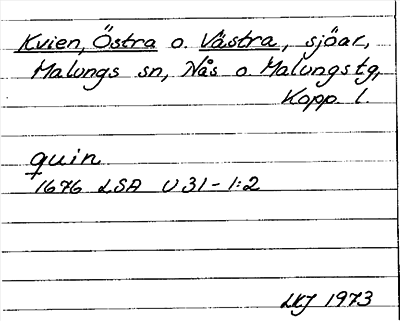 Kvien, Östra o. Västra, sjöar,
Malungs sn, Nås o. Malungs tg,
Kopp. l.
quin
1676 LSA U31-1:2
LKJ 1973